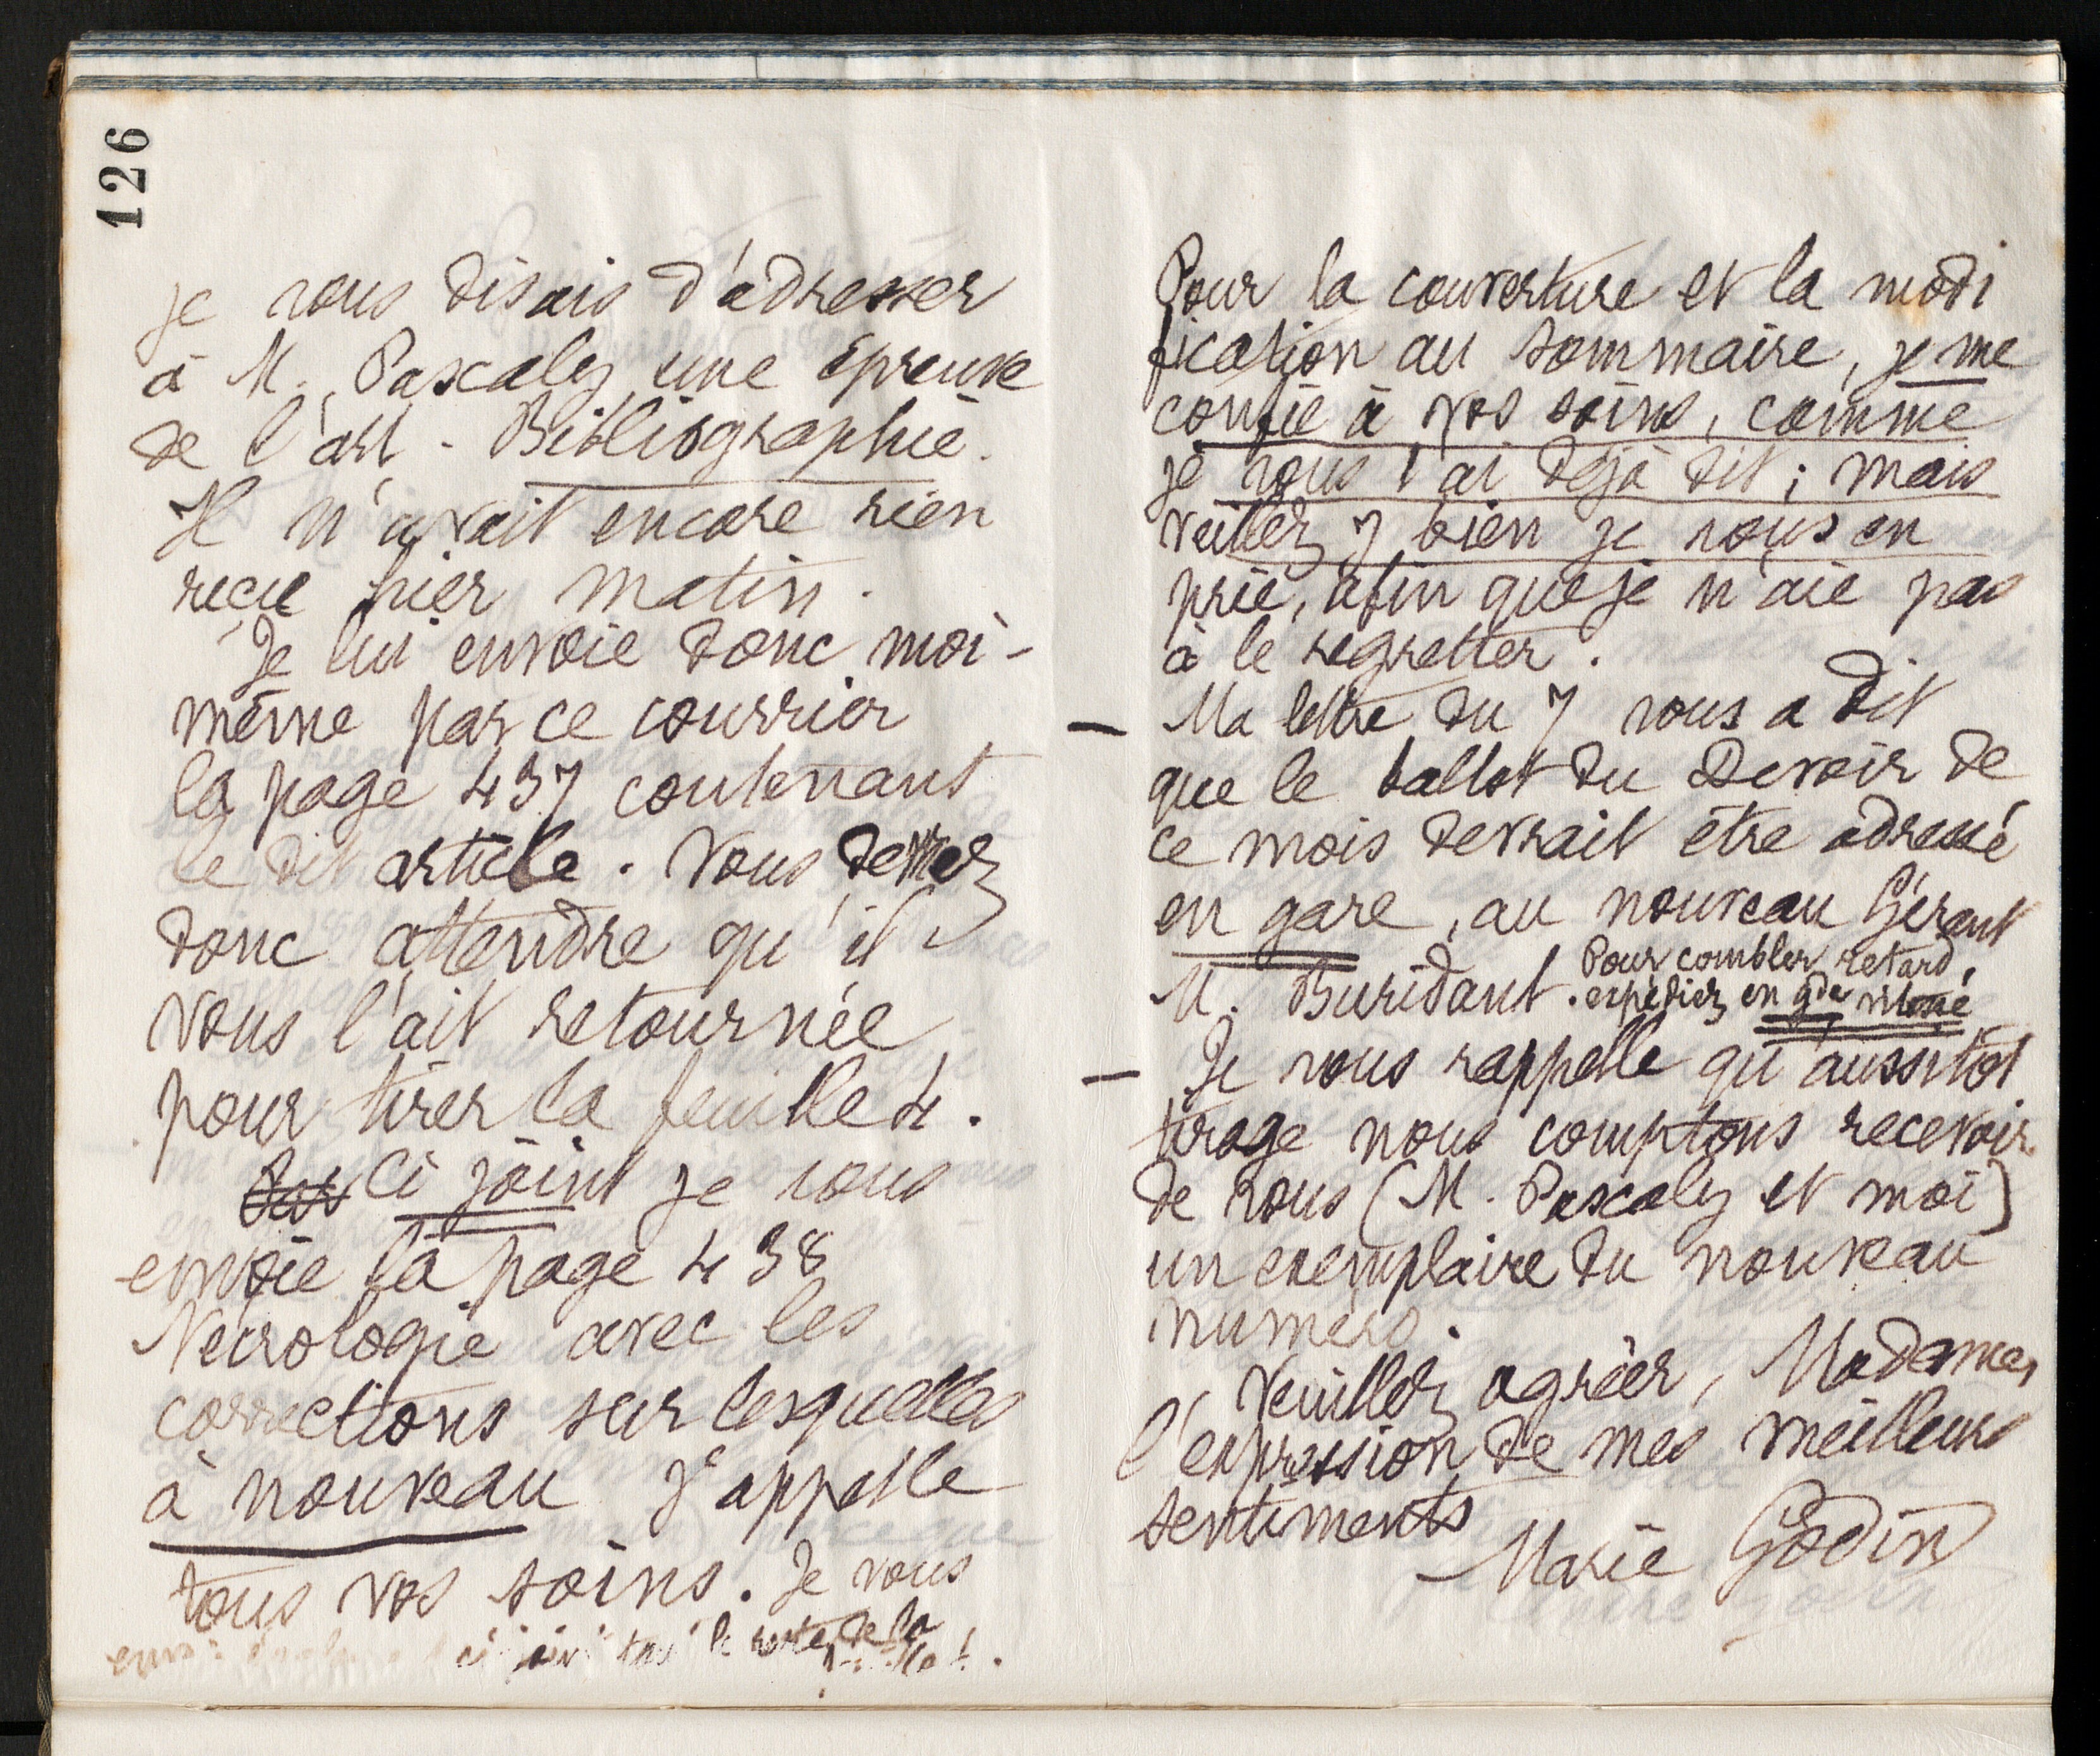 126
je vous disais d'adresser
à M. Pascaly une épreuve
de l'art. Bibliographie.
Il n'avait encore rien
reçu hier matin.
Je lui envoie donc moi-
même par ce courrier
la page 437 contenant
le dit article. Vous devrez
donc attendre qu'il
vous l'ait retournée
pour tirer la feuille 4.
Ci joint je vous
envoie la page 438
Nécrologie avec les
corrections sur lesquelles
à nouveau j'appelle
tous vos soins. Je vous
ci joint le reste de la
Pour la couverture et la modi
fication au sommaire, je me
confie à vos soins, comme
je vous l'ai déjà dit ; mais
veillez y bien je vous en
prie, afin que je n'aie pas
à le regretter.
— Ma lettre du 7 vous a dit
que le ballot du Devoir de
ce mois devrait être adressé
en gare, au nouveau Gérant
Pour combler retard,
M. Buridant. expédiez en gde vitesse
— Je vous rappelle qu'aussitôt
tirage nous comptons recevoir
de vous (M. Pascaly et moi)
un exemplaire du nouveau
numéro.
Veuillez agréer, Madame,
l'expression de mes meilleurs
sentiments
Marie Godin